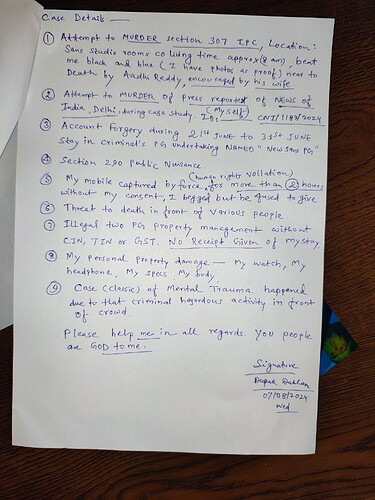 Case Details —
① Attempt to MURDER section 307 IPC, Location:
Sans Studio rooms co living time approx (8 am), beat
me black and blue (I have photos as proof) near to
Death by Aadhi Reddy, encouraged by his wife
② Attempt to MURDER of press reporter of NEWS OF
India, Delhi, during case study. (My self) ID: CNI/1189/2024
③ Account Forgery during 21st JUNE to 31st JUNE
stay in criminal's PG undertaking NAMED "New Sans PG"
④ Section 290 Public Nuisance.
(human rights vollation)
⑤ My mobile captured by force, for more than 2 hours
without my consent, I begged but he fused to give
⑥ Threat to death in front of various people
⑦ Illegal two PG property management without
CIN, TIN or GST. No Receipt Given of my stay.
⑧ My personal property damage — My watch, My
headphone, My specs My body.
⑨ Case (classic) of Mental Trauma happened
due to that criminal hazardous activity in front
of crowd.
Please help me in all regards. You people
are GOD to me.
Signature
Deepak
07/08/2024
Wed